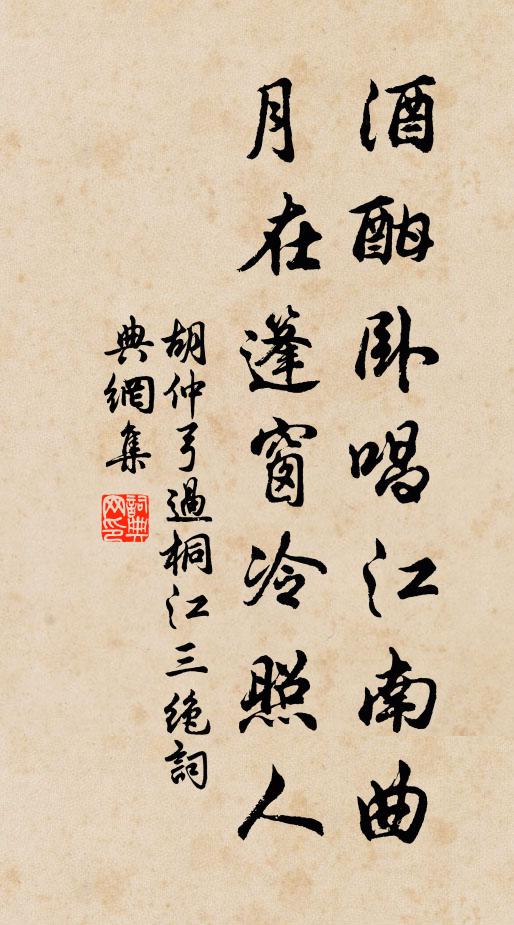 酒酣卧唱江南曲
月在篷窗冷照人
胡仲弓過桐江三绝詞
典網集
詞典网印